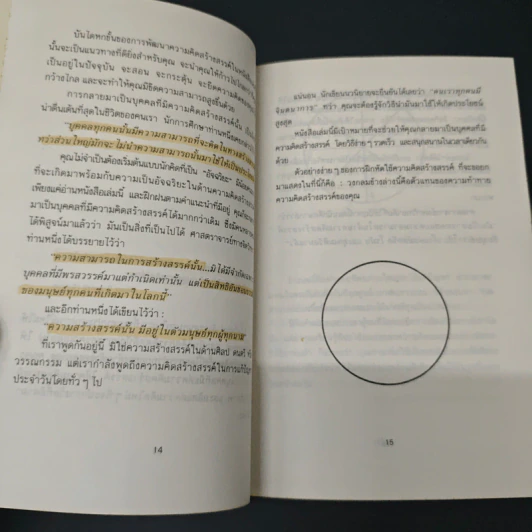 บันไดหกขั้นของการพัฒนาความคิดสร้างสรรค์ในหนังสือ
นั้นจะเป็นแนวทางที่ดียิ่งสำหรับคุณ จะนำคุณให้ก้าวไป
เป็นอยู่ในปัจจุบัน จะสอน จะกระตุ้น จะยืดความคิดของ
กว้างไกล และจะทำให้คุณมีขีดความสามารถสูงยิ่งขึ้นด้วย
การกลายมาเป็นบุคคลที่มีความคิดสร้างสรรค์นั้น
น่าตื่นเต้นที่สุดในชีวิตของคนเรา นักการศึกษาท่านหนึ่ง
"บุคคลทุกคนนั้นมีความสามารถที่จะคิดในทางสร้าง
ทว่าส่วนใหญ่มักจะไม่นำความสามารถนั้นมาใช้ให้เป็นประโยชน์
คุณไม่จำเป็นต้องเริ่มต้นแบบนักคิดที่เป็น "อัจฉริยะ"
ที่จะเกิดมาพร้อมกับความเป็นอัจฉริยะในด้านความคิด
เพียงแค่อ่านหนังสือเล่มนี้ และฝึกฝนตามคำแนะนำที่มีอยู่
มาเป็นบุคคลที่มีความคิดสร้างสรรค์ได้มากกว่าเดิม
ได้พิสูจน์มาแล้วว่า มันเป็นสิ่งที่เป็นไปได้ ศาสตราจารย์
ท่านหนึ่งได้บรรยายไว้ว่า
"ความสามารถในการสร้างสรรค์นั้น...มิได้มีจำกัด
บุคคลที่มีพรสวรรค์มาแต่กำเนิดเท่านั้น แต่เป็นสิทธิอัน
ของมนุษย์ทุกคนที่เกิดมาในโลกนี้"
และอีกท่านหนึ่งได้เขียนไว้ว่า :
"ความสร้างสรรค์นั้น มีอยู่ในตัวมนุษย์ทุกผู้ทุกนาม"
ที่เราพูดกันอยู่นี้ มิใช่ความสร้างสรรค์ในด้านศิลป ดนตรี
วรรณกรรม แต่เรากำลังพูดถึงความคิดสร้างสรรค์ในการ
ประจำวันโดยทั่ว ๆ ไป
14
แน่นอน นักเขียนนวนิยายจะยืนยันได้เลยว่า "คนเราทุกคนมี
จินตนาการ" ทว่า คุณจะต้องรู้จักวิธีนำมันมาใช้ให้เกิดประโยชน์
สูงสุด
หนังสือเล่มนี้มีเป้าหมายที่จะช่วยให้คุณกลายมาเป็นบุคคลที่มี
ความคิดสร้างสรรค์ โดยวิธีง่าย ๆ รวดเร็ว และสนุกสนานในเวลาเดียวกัน
ด้วย
ตัวอย่างง่าย ๆ ของการฝึกหัดใช้ความคิดสร้างสรรค์ ที่จะขอยก
มาแสดงในที่นี้ก็คือ : วงกลมข้างล่างนี้คือตัวแทนของความท้าทาย
ความคิดสร้างสรรค์ของคุณ
15